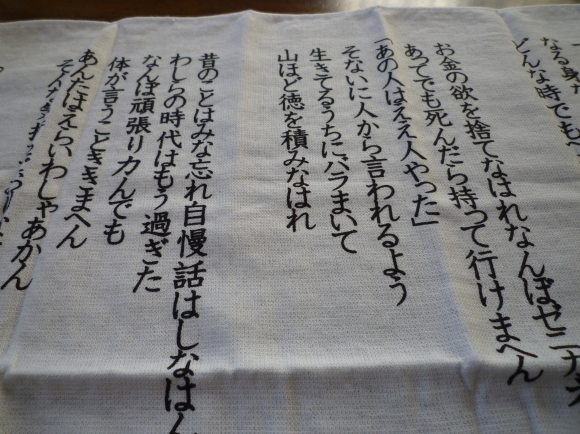 なる身
どんな時でも
お金の欲を捨てなはれなんぼゼニカネ
あってでも死んだら持って行けまへん
「あの人はええ人やった」
そないに人から言われるよう
生きてるうちにバラまいて
山ほど徳を積みなはれ
昔のことはみな忘れ自慢話はしなはん
わしらの時代はもう過ぎた
なんぼ頑張り力んでも
体が言うことききまへん
あんたはえらいわしゃあかん
そんな